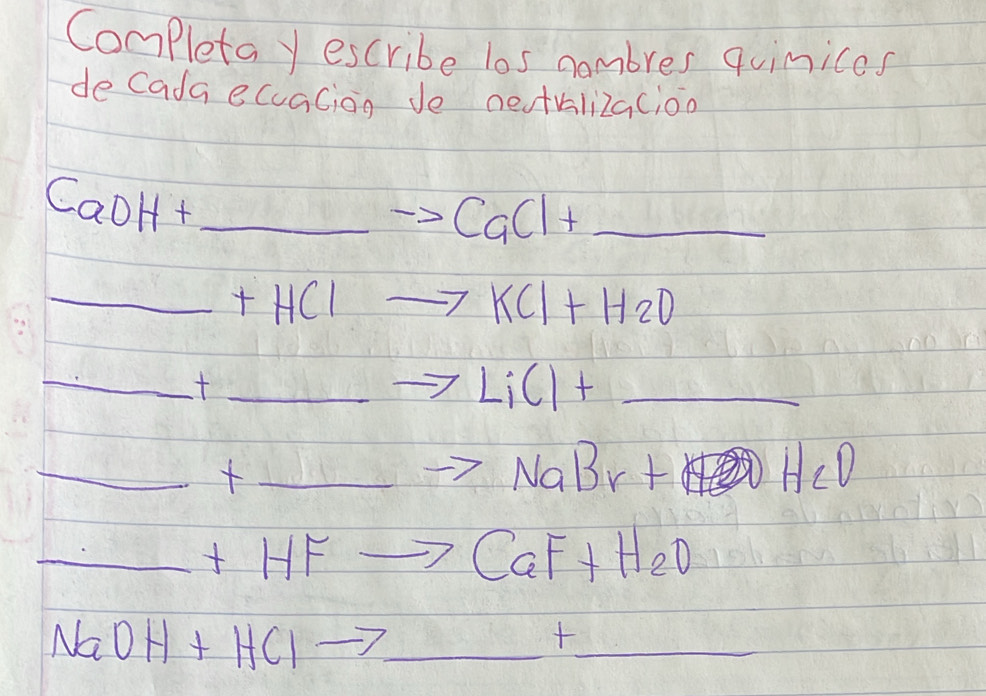 Completa y escribe los nombres quimicos
de cada ecuación de neutralización
CaOH + ________ -> CaCl + ________
________ + HCl -> KCl + H2O
________ + ________ -> LiCl + ________
________ + ________ -> NaBr + H2O
________ + HF -> CaF + H2O
NaOH + HCl -> ________ + ________